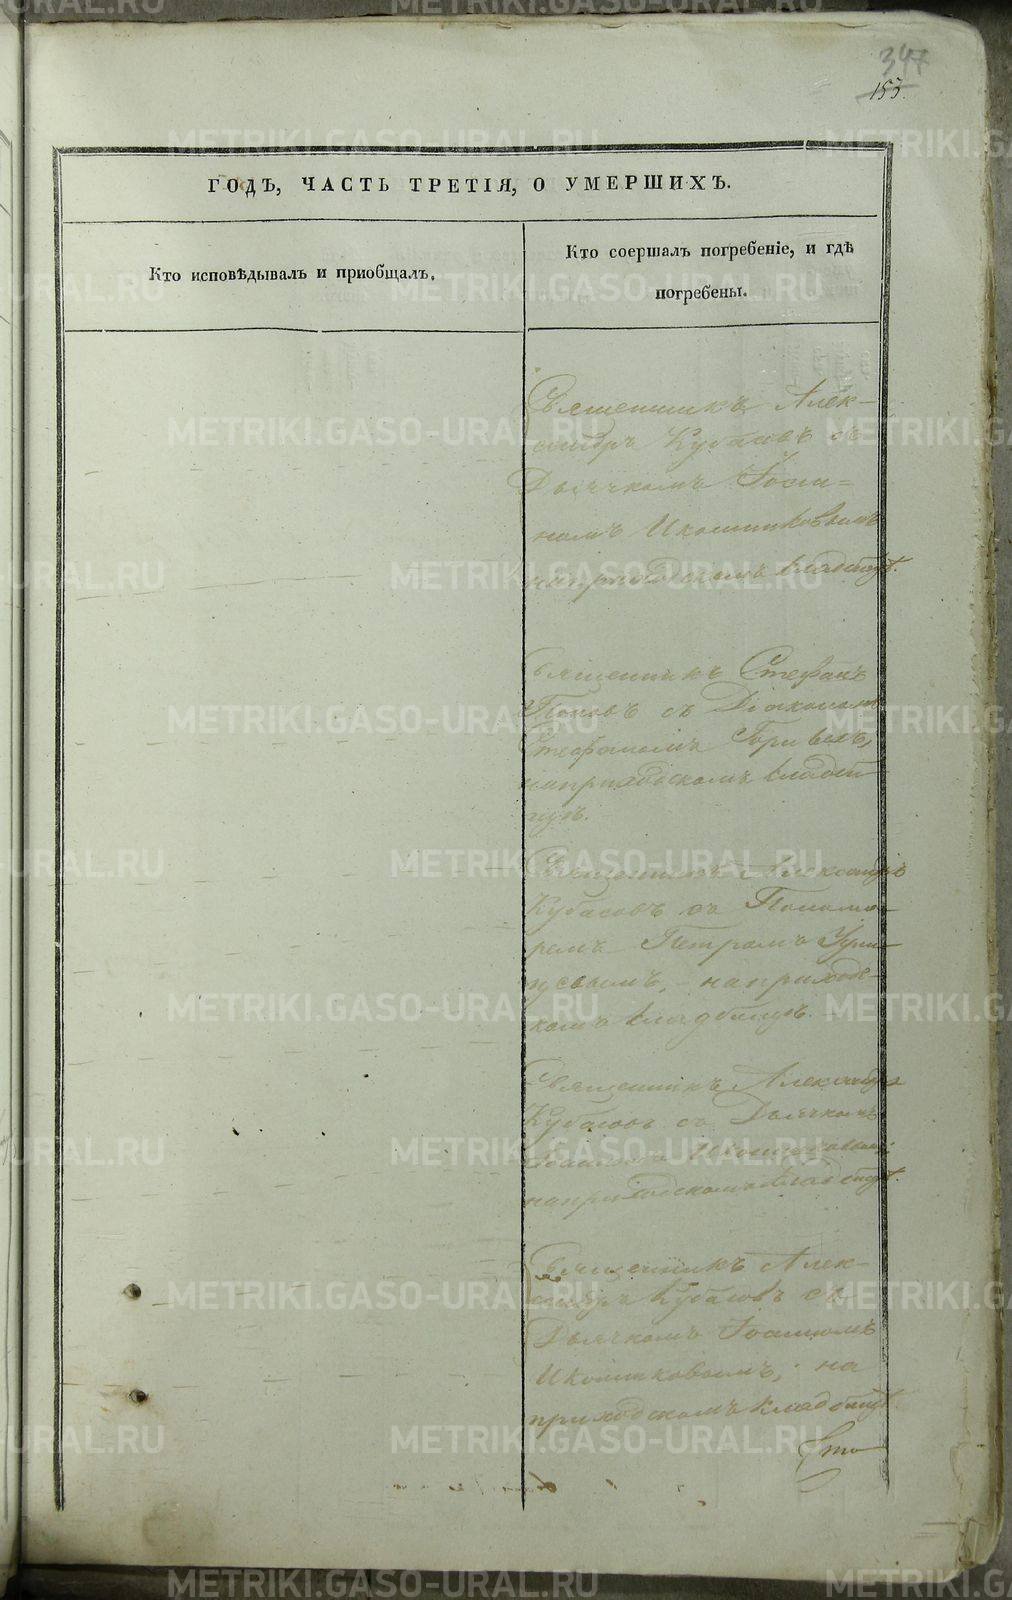 347
153.
ГОДЪ, ЧАСТЬ ТРЕТІЯ, О УМЕРШИХЪ.
Кто исповѣдывалъ и приобщалъ.
Кто соершалъ погребеніе, и гдѣ
погребены.
Священникъ Алек-
сандръ Кубасовъ съ
Дьячкомъ Іоан=
номъ Иконниковымъ
на приходскомъ кладбищѣ.
Священникъ Стефанъ
Поповъ съ Діакономъ
Стефаномъ
на приходскомъ кладби
щѣ.
Священникъ Александръ
Кубасовъ съ Понома-
ремъ Петромъ
на приходс-
комъ кладбищѣ.
Священникъ Александръ
Кубасовъ съ Дьячкомъ
Іоанномъ Иконниковымъ,
на приходскомъ кладбищѣ.
Священникъ Алек-
сандръ Кубасовъ съ
Дьячкомъ Іоанномъ
Иконниковымъ, на
приходскомъ кладбищѣ.
METRIKI.GASO-URAL.RU